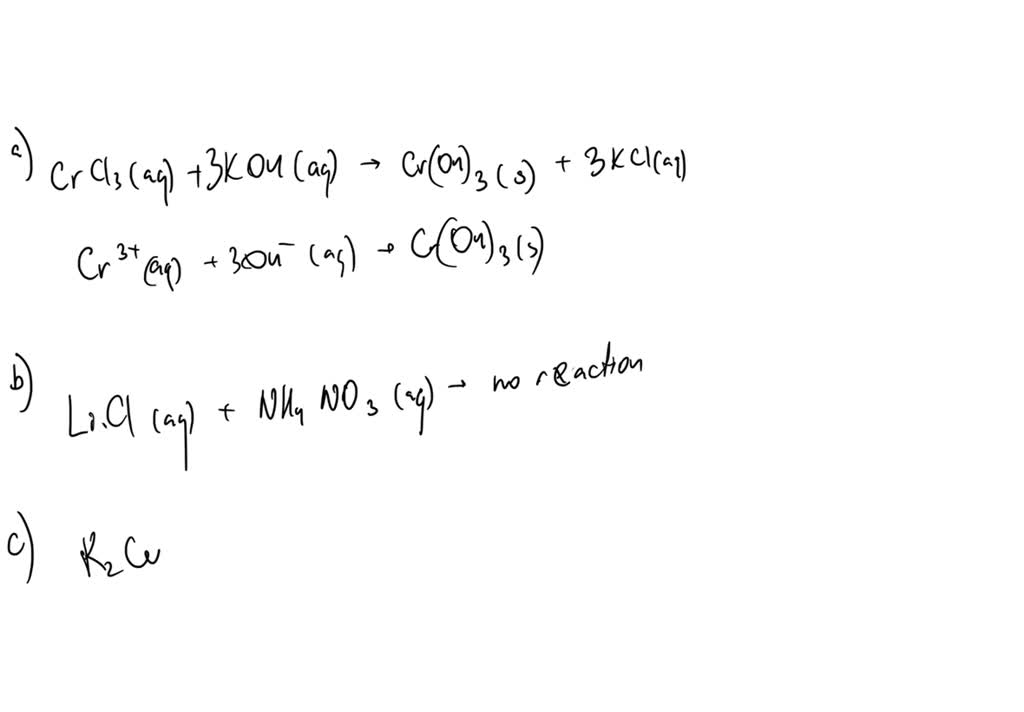 a) CrCl₃(aq) + 3KOH(aq) → Cr(OH)₃(s) + 3KCl(aq)
Cr³⁺(aq) + 3OH⁻(aq) → Cr(OH)₃(s)
b) LiCl(aq) + NH₄NO₃(aq) → no reaction
c) K₂